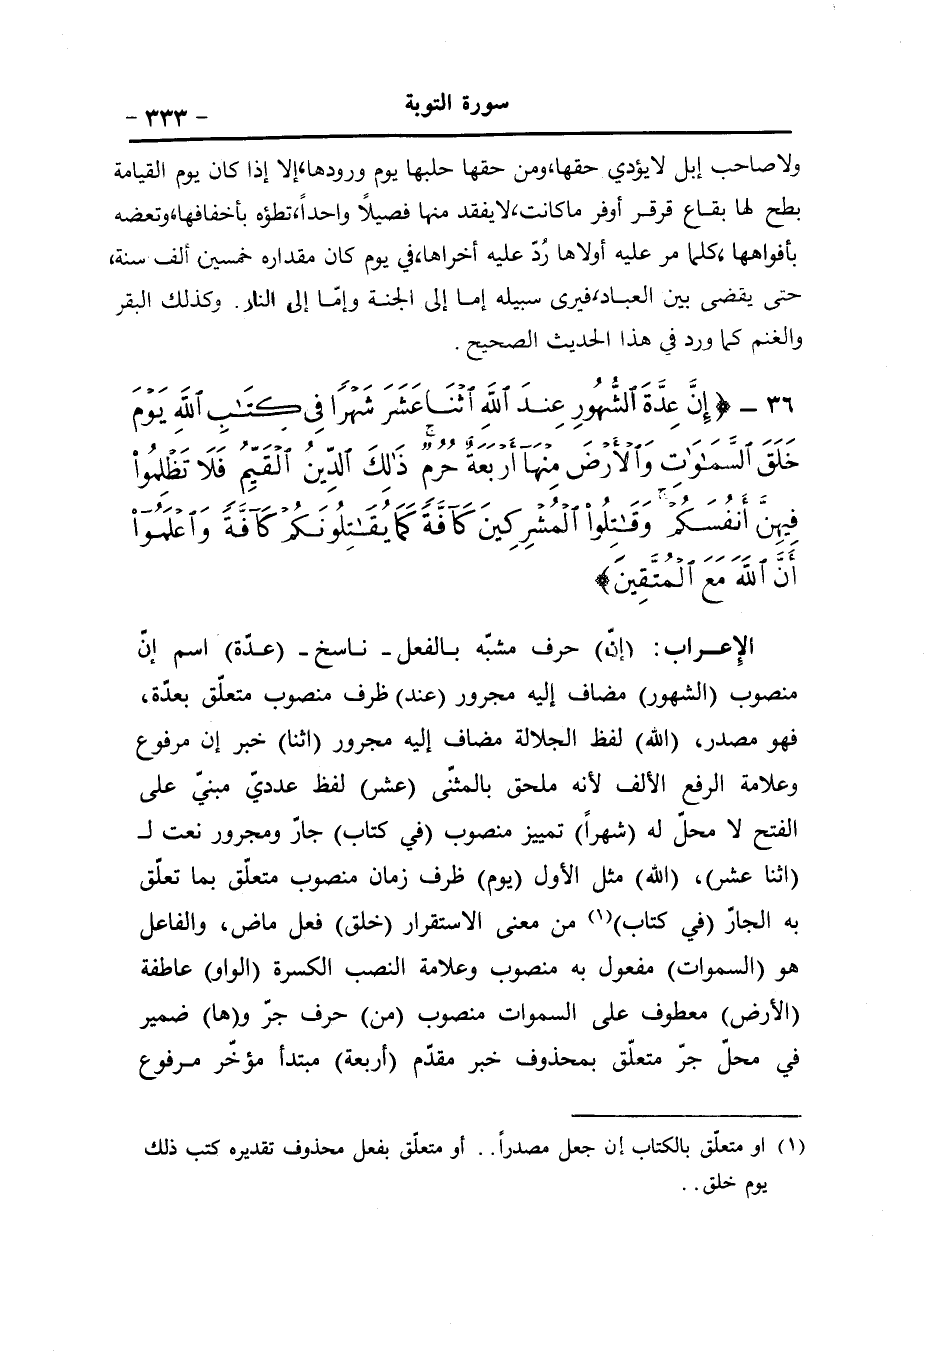 سورة التوبة
- ٣٣٣ -
ولاصاحب إبل لايؤدي حقها،ومن حقها حلبها يوم ورودها،إلا إذا كان يوم القيامة
بطح لها بقاع قرقر أوفر ماكانت،لايفقد منها فصيلاً واحداً،تطؤه بأخفافها،وتعضه
بأفواهها ،كلما مر عليه أولاها رُدّ عليه أخراها،في يوم كان مقداره خمسين ألف سنة،
حتى يقضى بين العباد،فيرى سبيله إما إلى الجنة وإمّا إلى النار. وكذلك البقر
والغنم كما ورد في هذا الحديث الصحيح .
٣٦ - ﴿إِنَّ عِدَّةَ ٱلشُّهُورِ عِندَ ٱللَّهِ ٱثْنَا عَشَرَ شَهْرًا فِى كِتَـٰبِ ٱللَّهِ يَوْمَ
خَلَقَ ٱلسَّمَـٰوَٰتِ وَٱلْأَرْضَ مِنْهَآ أَرْبَعَةٌ حُرُمٌ ۚ ذَٰلِكَ ٱلدِّينُ ٱلْقَيِّمُ فَلَا تَظْلِمُوا۟
فِيهِنَّ أَنفُسَكُمْ ۚ وَقَـٰتِلُوا۟ ٱلْمُشْرِكِينَ كَآفَّةً كَمَا يُقَـٰتِلُونَكُمْ كَآفَّةً وَٱعْلَمُوٓا۟
أَنَّ ٱللَّهَ مَعَ ٱلْمُتَّقِينَ﴾
الإعراب: (إنّ) حرف مشبّه بالفعل - ناسخ - (عدّة) اسم إنّ
منصوب (الشهور) مضاف إليه مجرور (عند) ظرف منصوب متعلّق بعدّة،
فهو مصدر، (الله) لفظ الجلالة مضاف إليه مجرور (اثنا) خبر إن مرفوع
وعلامة الرفع الألف لأنه ملحق بالمثّنى (عشر) لفظ عدديّ مبنيّ على
الفتح لا محلّ له (شهراً) تمييز منصوب (في كتاب) جارّ ومجرور نعت لـ
(اثنا عشر)، (الله) مثل الأول (يوم) ظرف زمان منصوب متعلّق بما تعلّق
به الجارّ (في كتاب)(١) من معنى الاستقرار (خلق) فعل ماض، والفاعل
هو (السموات) مفعول به منصوب وعلامة النصب الكسرة (الواو) عاطفة
(الأرض) معطوف على السموات منصوب (من) حرف جرّ و(ها) ضمير
في محلّ جرّ متعلّق بمحذوف خبر مقدّم (أربعة) مبتدأ مؤخّر مرفوع
(١) او متعلّق بالكتاب إن جعل مصدراً.. أو متعلّق بفعل محذوف تقديره كتب ذلك
يوم خلق..